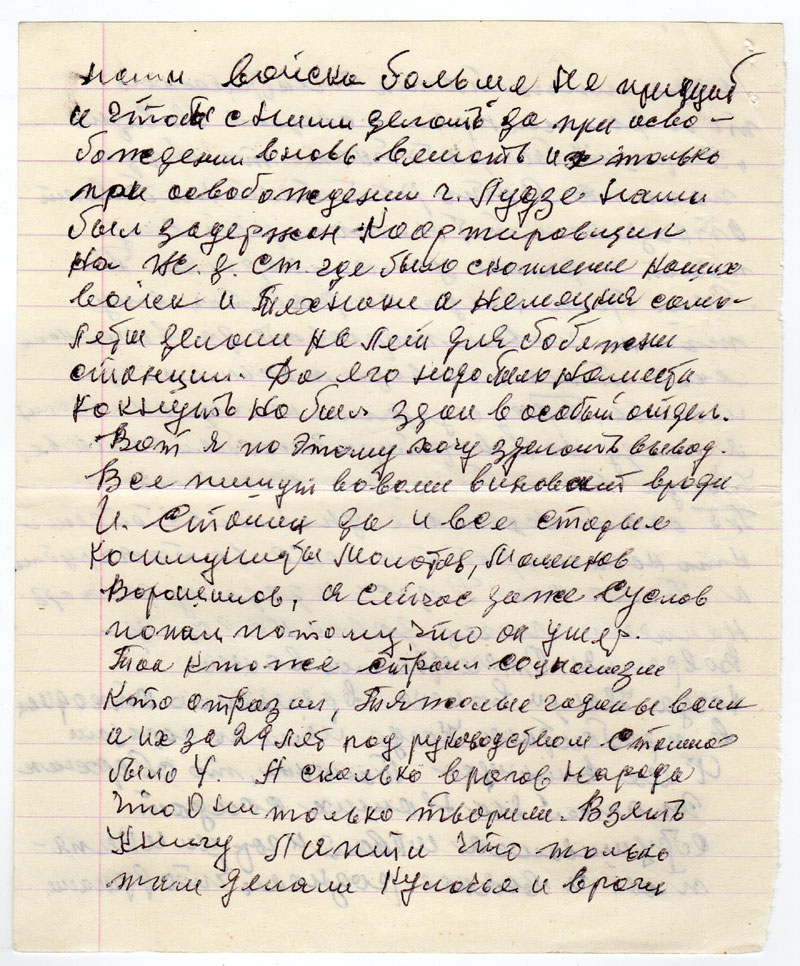 наши войска больше не придут
и чтоб с ними делать да при осво-
бождении вновь вешать их только
при освобождении г. Лудзе нами
был задержан Коордировщик
на Ж. д. ст. где было скопление наших
войск и Техники а Немецкия само-
леты делали на лет для бобежки
станции. Да его надо было на месте
кокнуть но был здан в особый отдел.
Вот я по этому хочу зделать вывод.
Все пишут во всем виноват вроди
И. Сталин да и все старые
Коммунисты Молотов, Маленков
Ворошилов, а Сейчас даже Суслов
попал потому что он умер.
Так кто же строил социализм
Кто отразил, Тяжолые годины войн
а их за 29 лет под руководством Сталина
было 4. А сколько врагов народа
что Они только творили. Взять
Книгу Лапти что только
там делали Кулачье и враги